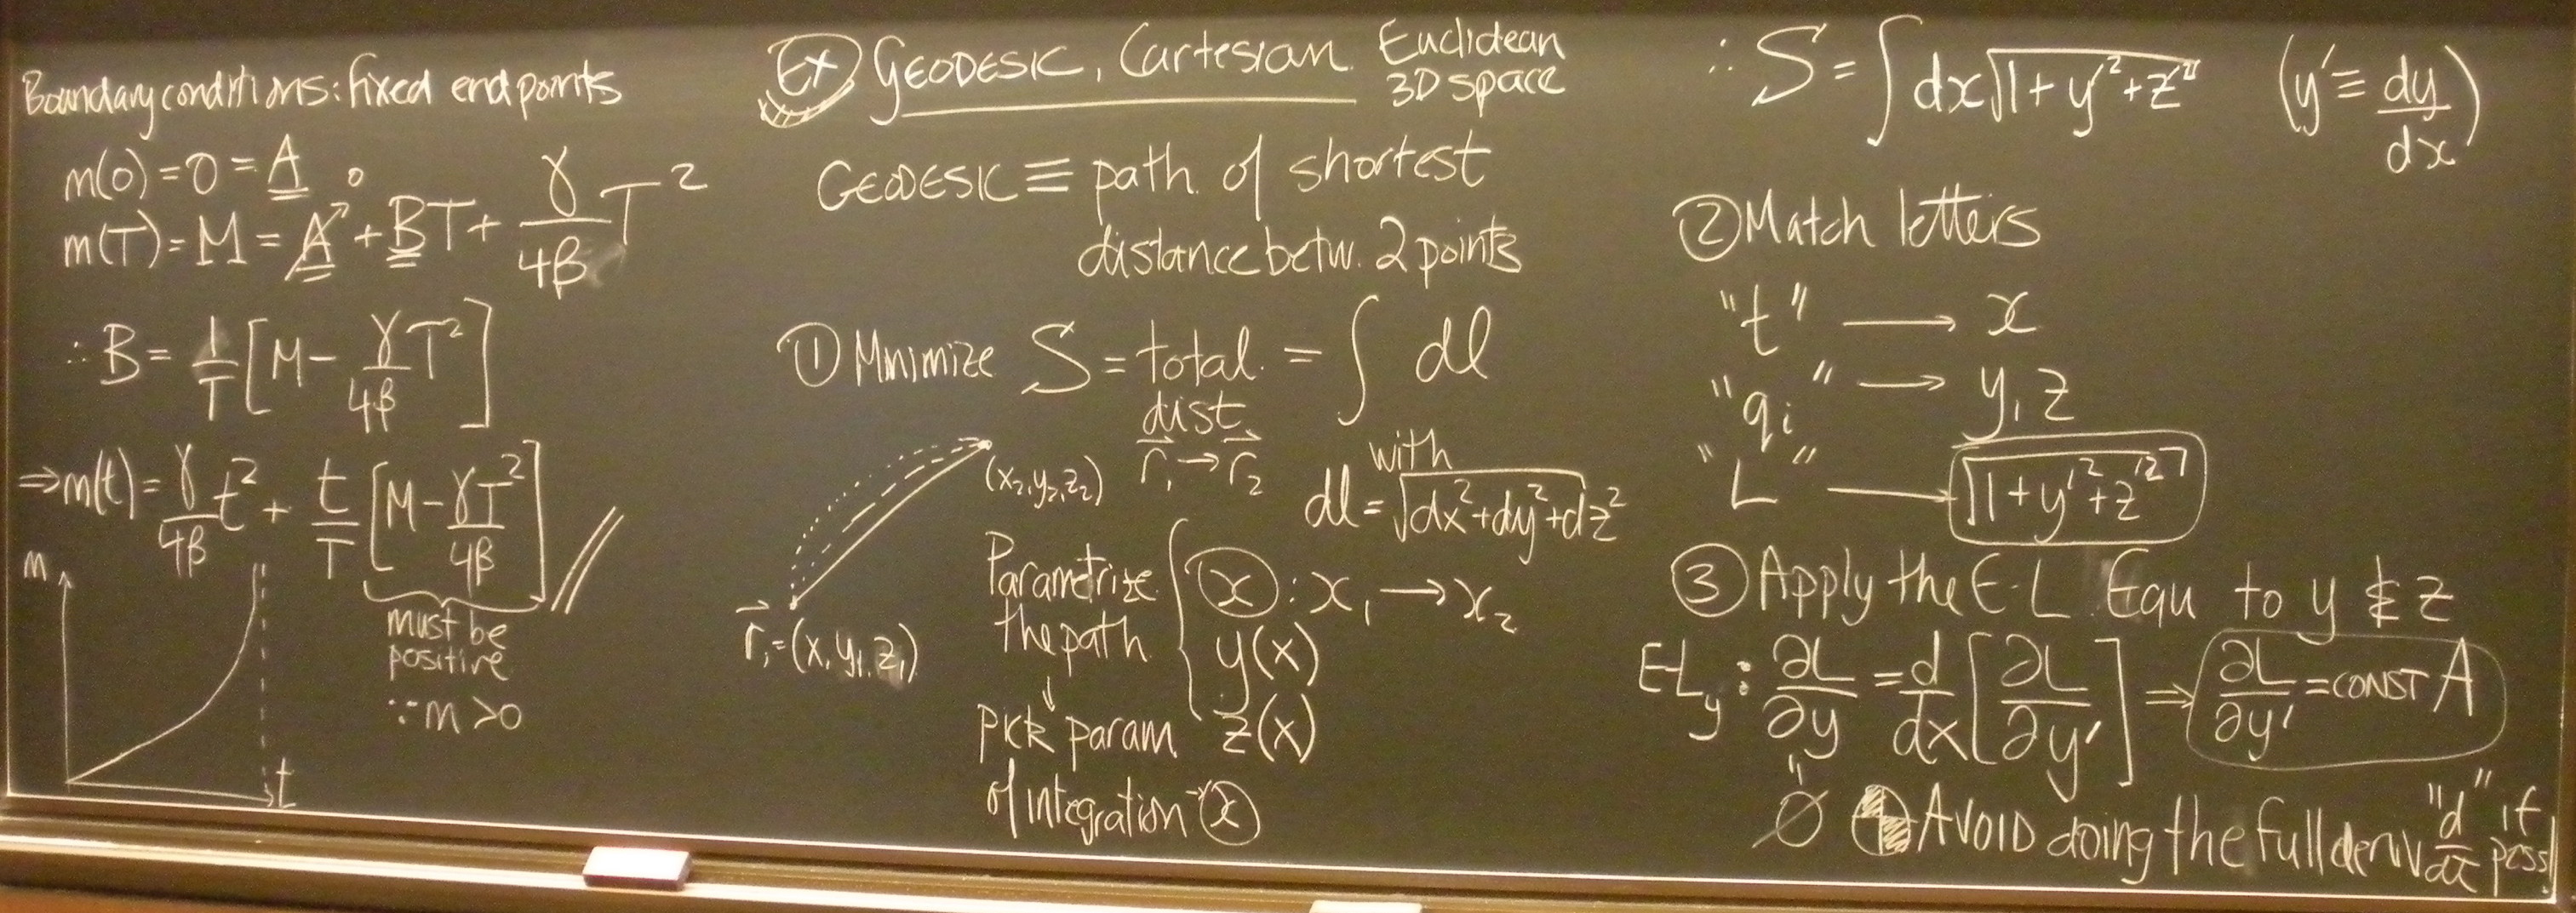 Boundary conditions: fixed endpoints
m(0) = 0 = A
m(T) = M = A→0 + BT + γ/4β T²
∴ B = 1/T [M - γ/4β T²]
⇒ m(t) = γ/4β t² + t/T [M - γT²/4β] //
must be
positive
∵ m > 0
m
t
Ex GEODESIC, Cartesian. Euclidean
3D space
GEODESIC ≡ path of shortest
distance betw. 2 points
① Minimize S = total dist. r⃗₁ → r⃗₂ = ∫ dl
with
dl = √dx² + dy² + dz²
(x₂, y₂, z₂)
r⃗₁ = (x, y₁, z₁)
Parametrize
the path
x : x₁ → x₂
y(x)
z(x)
↓
pick param.
of integration → x
∴ S = ∫ dx √1 + y'² + z'² (y' ≡ dy/dx)
② Match letters
"t" → x
"qi" → y, z
"L" → √1 + y'² + z'²
③ Apply the E-L Equ to y & z
E-Ly : ∂L/∂y = d/dx [∂L/∂y'] ⇒ ∂L/∂y' = CONST A
" 
0
AVOID doing the full deriv "d/dt" if poss!